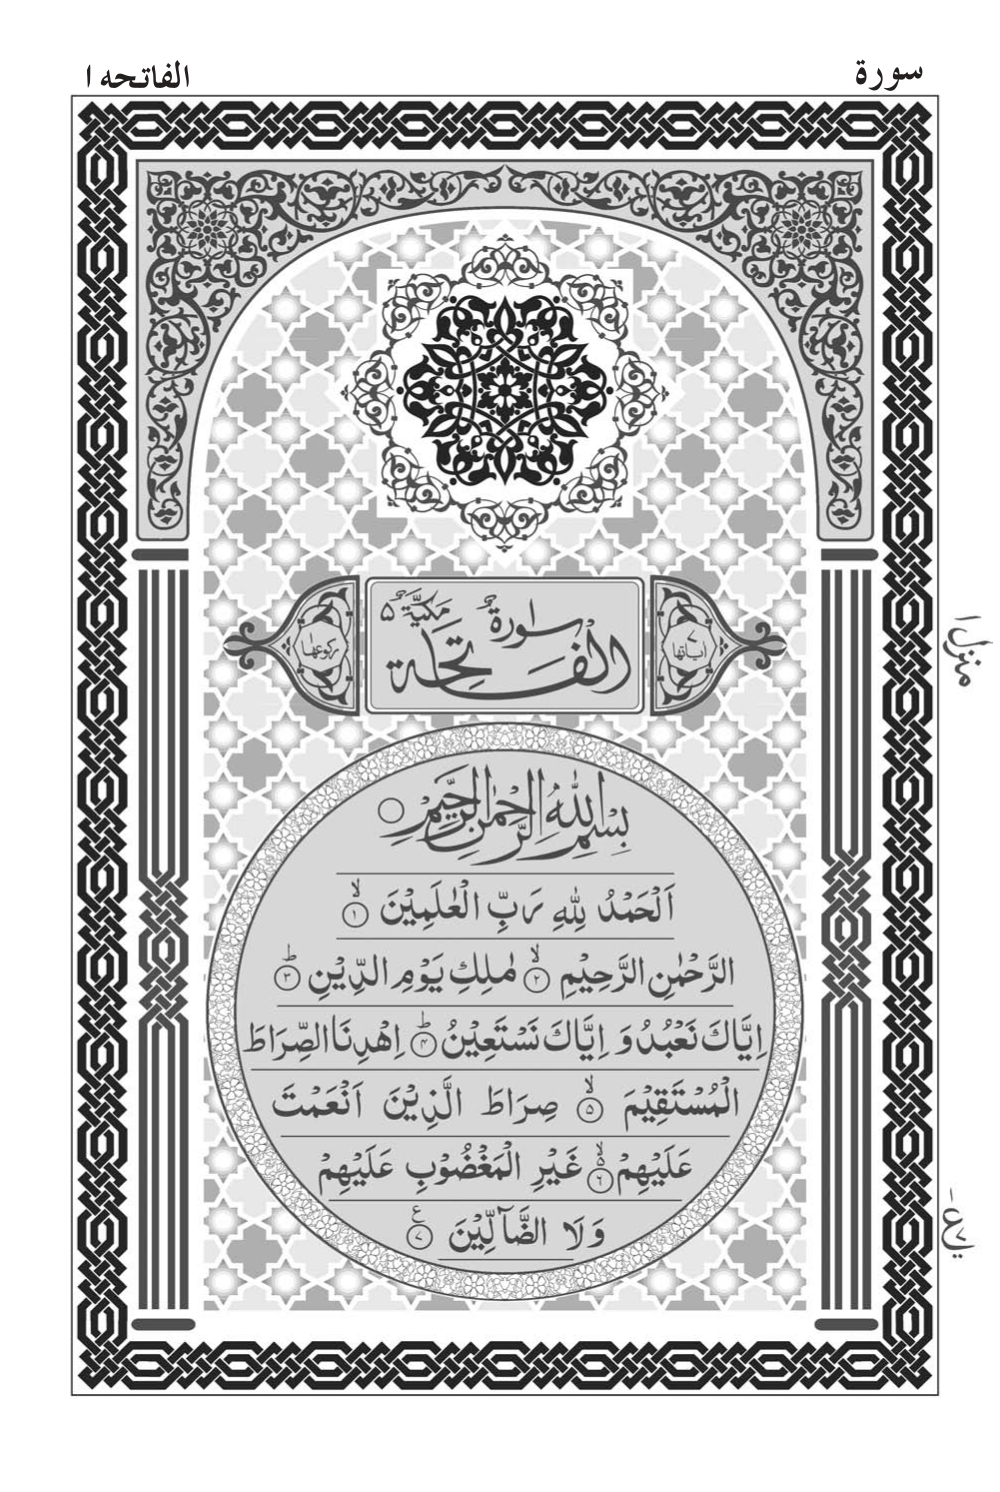 سورة
الفاتحه ١
سورة
الفاتحة
مكية ٥
اياتها ٧
ركوعها ١
بِسْمِ اللّٰهِ الرَّحْمٰنِ الرَّحِيْمِ ○
اَلْحَمْدُ لِلّٰهِ رَبِّ الْعٰلَمِيْنَ ۙ﴿١﴾
الرَّحْمٰنِ الرَّحِيْمِ ۙ﴿٢﴾ مٰلِكِ يَوْمِ الدِّيْنِ ؕ﴿٣﴾
اِيَّاكَ نَعْبُدُ وَ اِيَّاكَ نَسْتَعِيْنُ ؕ﴿۴﴾ اِهْدِنَا الصِّرَاطَ
الْمُسْتَقِيْمَ ۙ﴿۵﴾ صِرَاطَ الَّذِيْنَ اَنْعَمْتَ
عَلَيْهِمْ ۙ﴿۶﴾ غَيْرِ الْمَغْضُوْبِ عَلَيْهِمْ
وَ لَا الضَّآلِّيْنَ ﴿٧﴾ ع
منزل ١